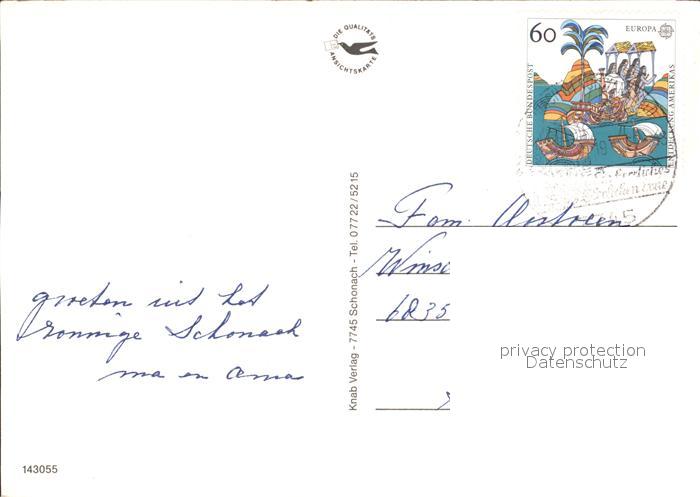 DIE QUALITÄTS
ANSICHTSKARTE
60
EUROPA
DEUTSCHE BUNDESPOST
ENTDECKUNG AMERIKAS
Fam.
Wins
6835
groeten uit het
zonnige Schonach
ma en
privacy protection
Datenschutz
Knab Verlag - 7745 Schonach - Tel. 0 77 22 / 5215
143055